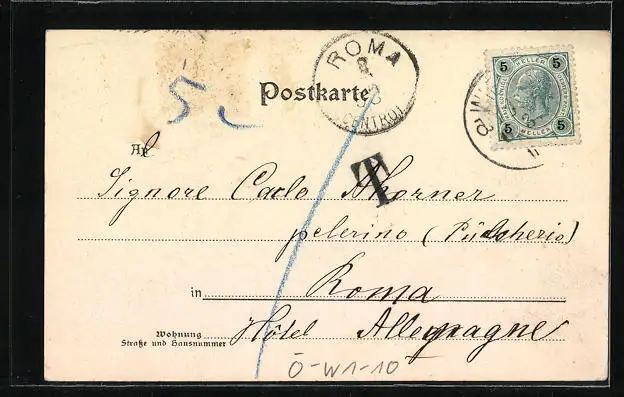 5
ROMA
8
CENTRO
Postkarte
5 HELLER 5
5 HELLER 5
W
An
T
Signore Carlo Thorner
pelerino (Pulcherio)
in Roma
Wohnung
Straße und Hausnummer
Hôtel Allemagne
Ö-W1-10